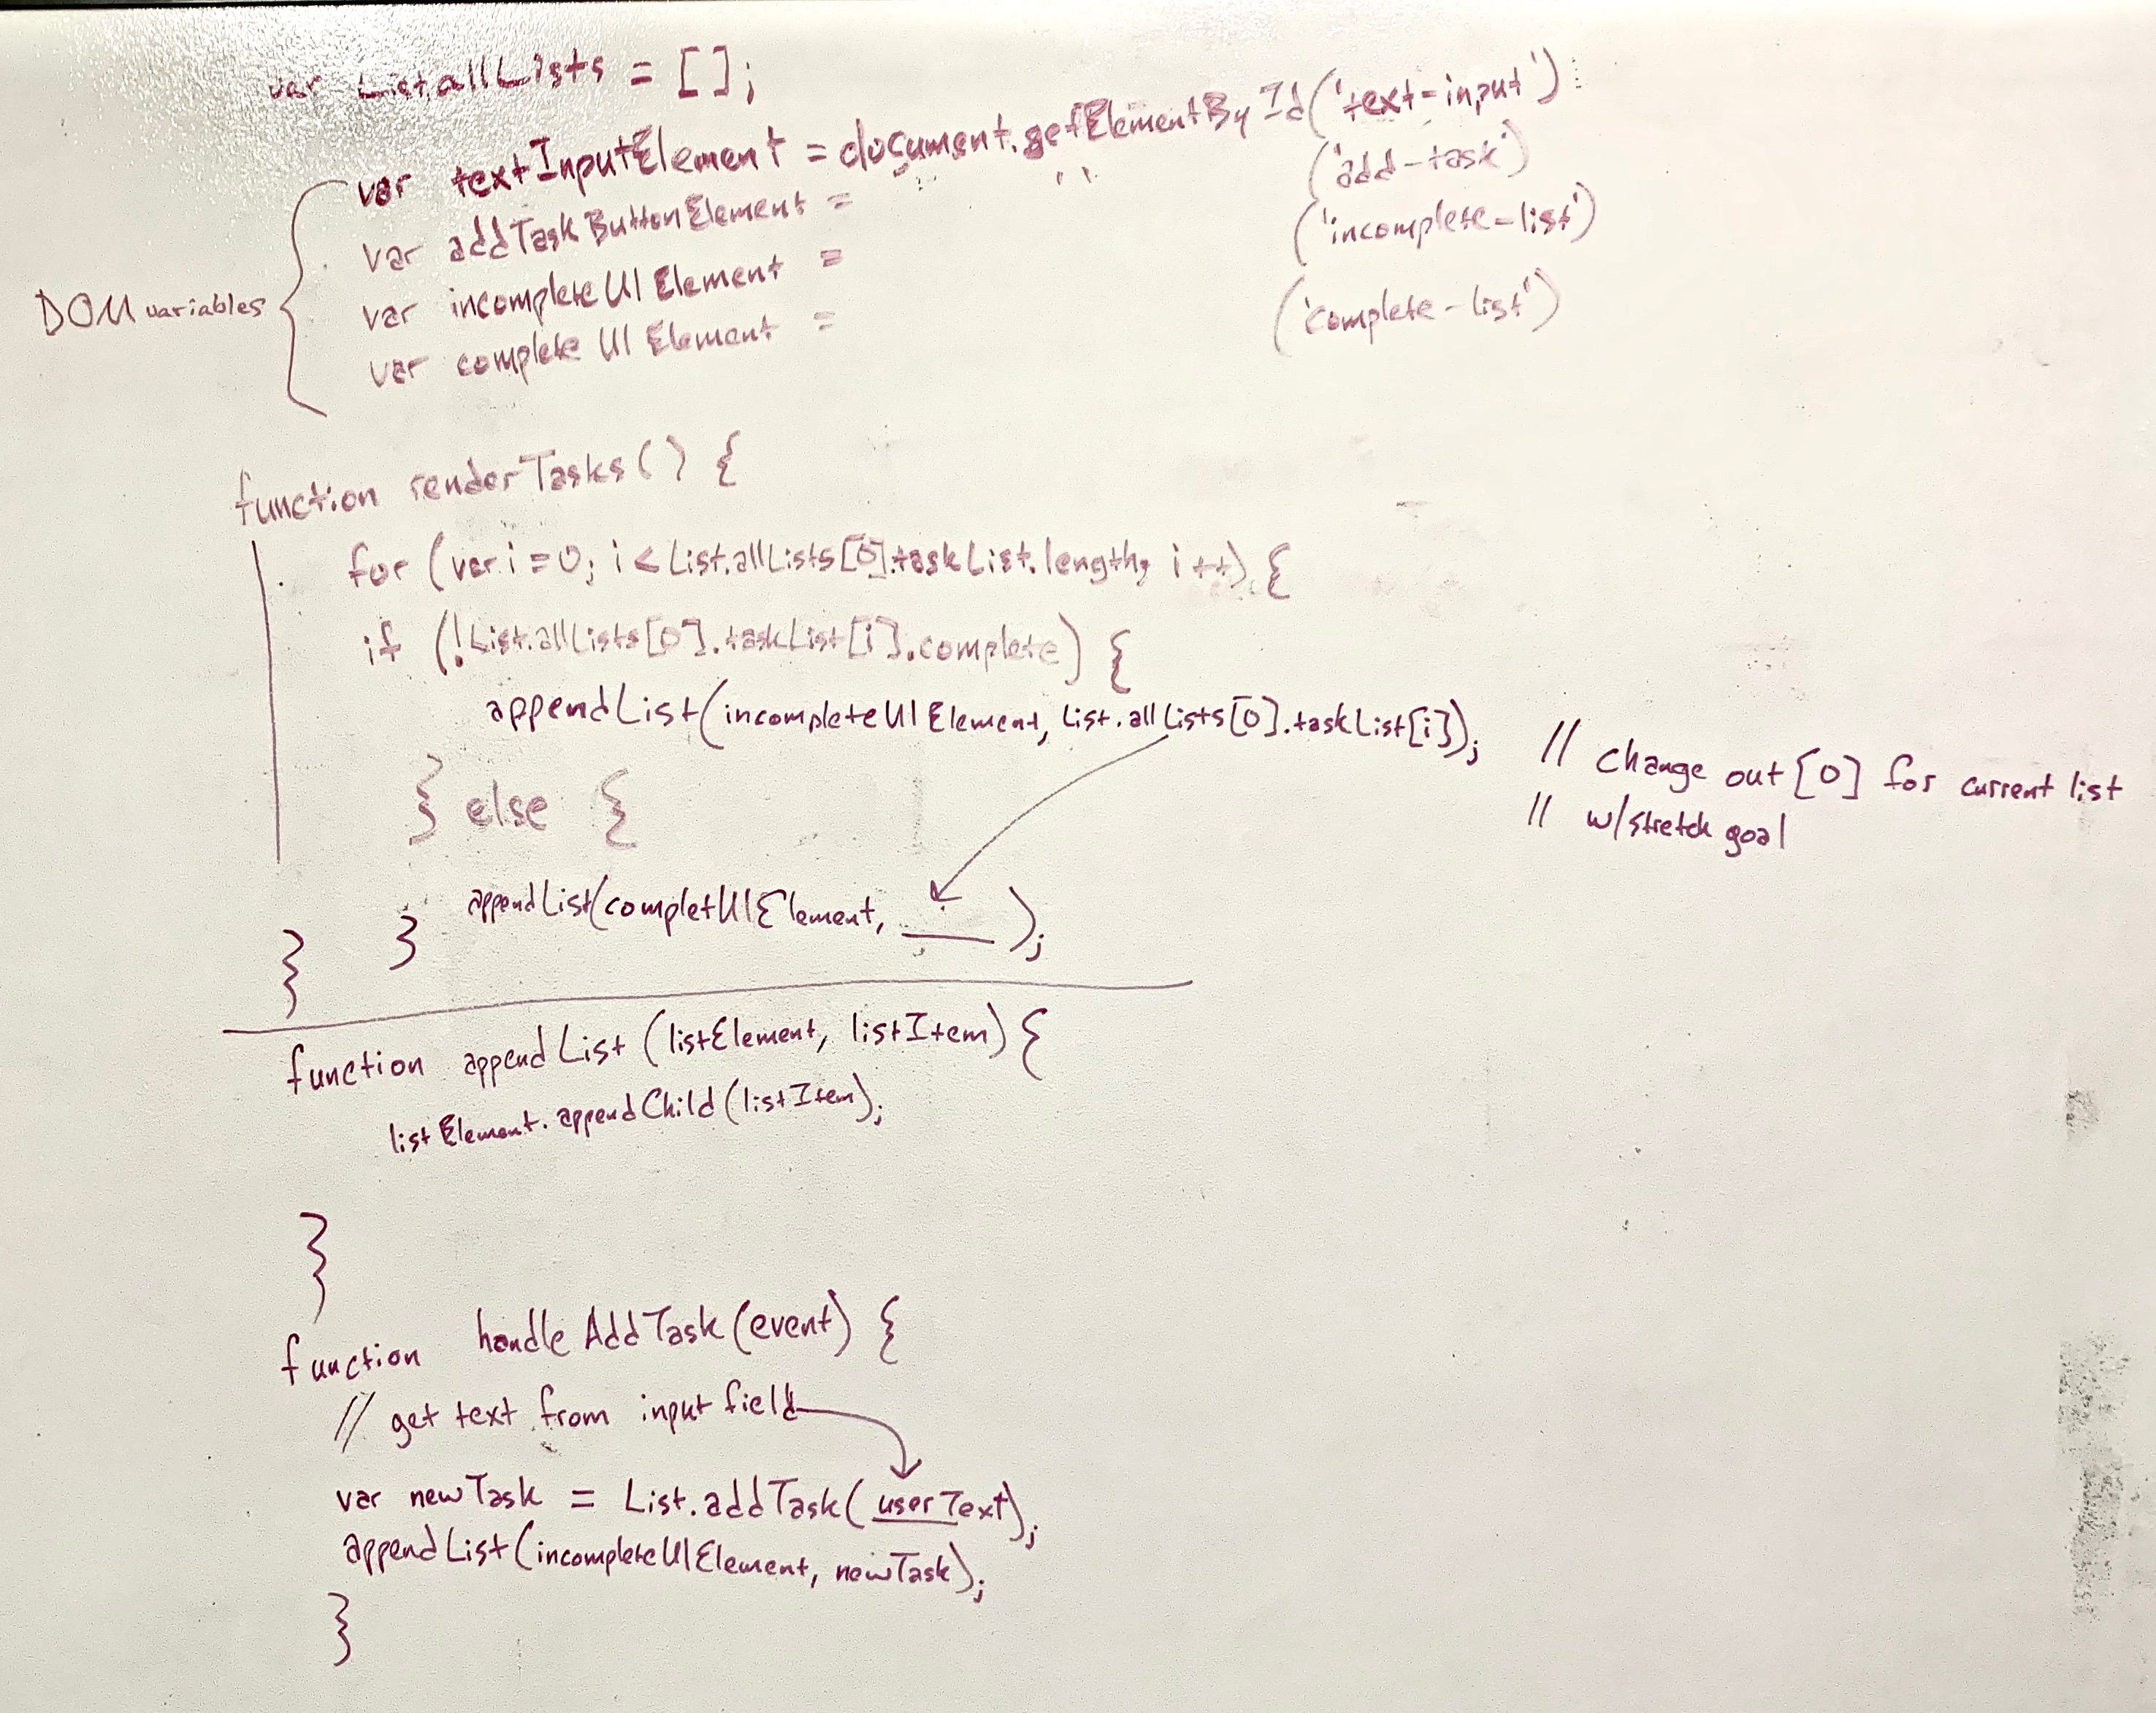 var List.allLists = [];
var textInputElement = document.getElementById('text-input');
var addTaskButtonElement = '' ('add-task')
var incompleteUlElement = ('incomplete-list')
var complete Ul Element = ('complete-list')
DOM variables
function renderTasks() {
for (var i=0; i < List.allLists[0].taskList.length; i++) {
if (!List.allLists[0].taskList[i].complete) {
appendList(incompleteUlElement, List.allLists[0].taskList[i]);
// change out [0] for current list
// w/stretch goal
} else {
appendList(completUlElement, ____ );
}
}
function appendList (listElement, listItem) {
listElement.appendChild(listItem);
}
function handleAddTask(event) {
// get text from input field
var newTask = List.addTask(userText);
appendList(incompleteUlElement, newTask);
}